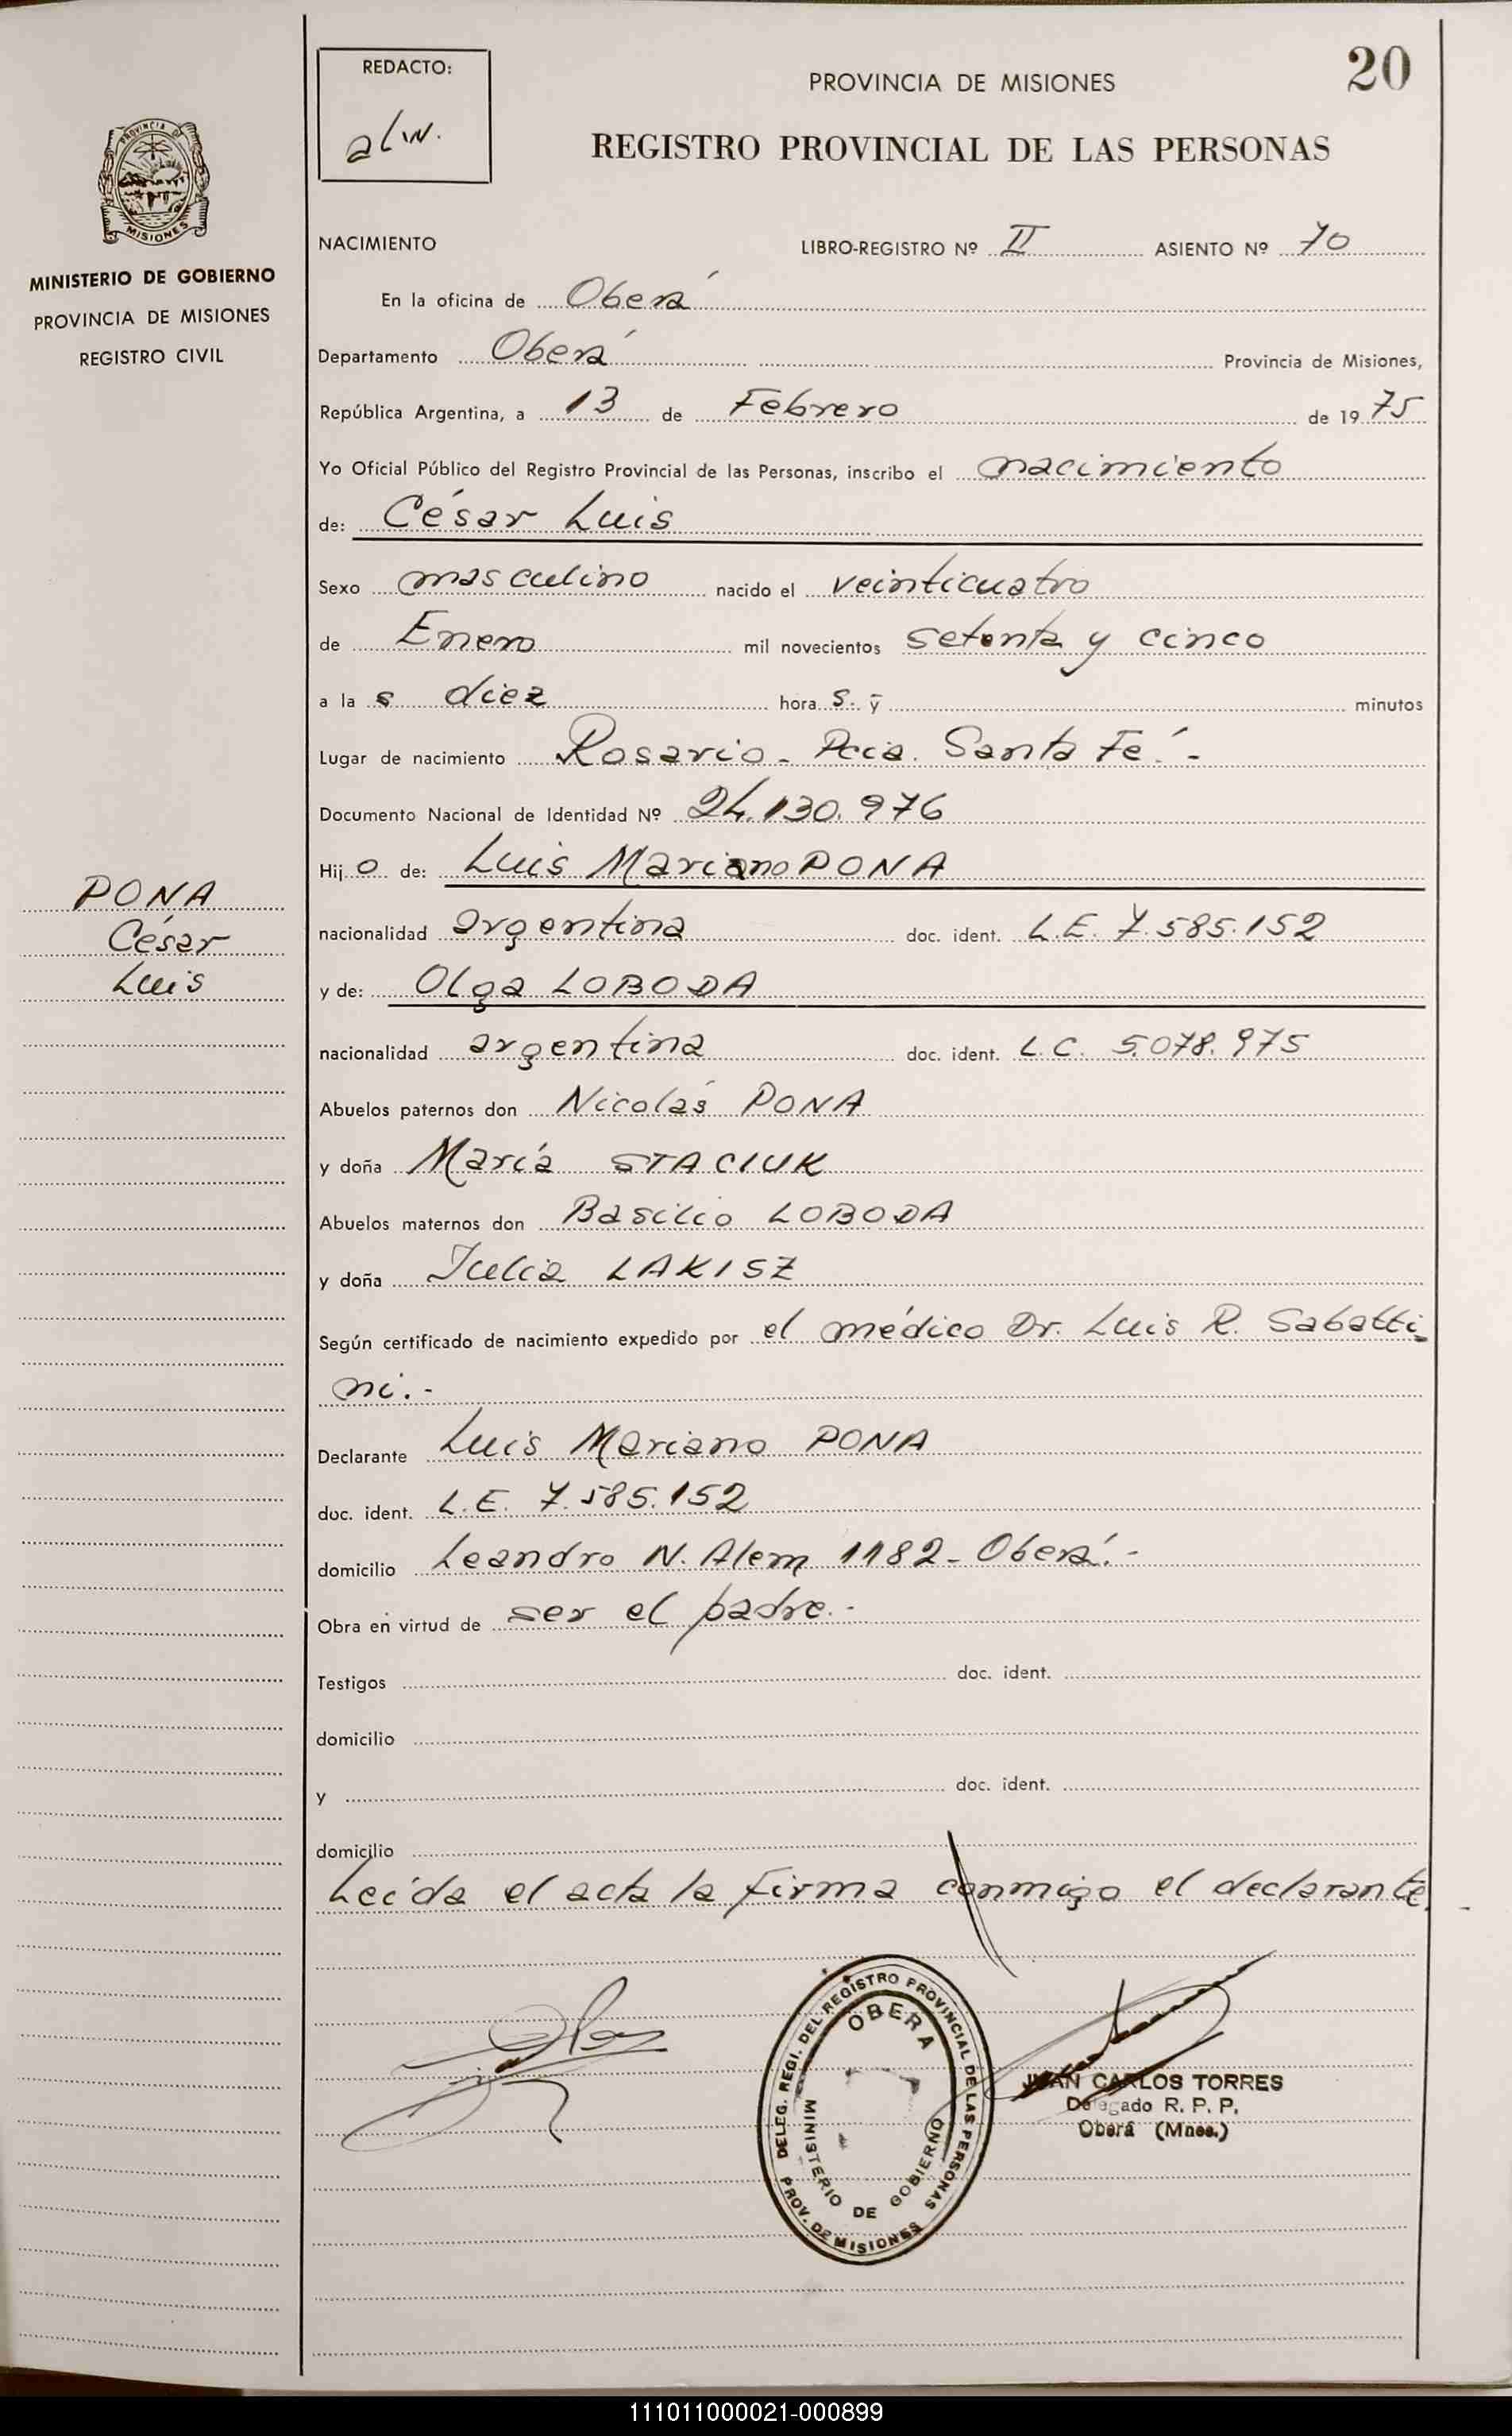 REDACTO:
alw.
PROVINCIA DE MISIONES
20
REGISTRO PROVINCIAL DE LAS PERSONAS
PROVINCIA DE
MISIONES
MINISTERIO DE GOBIERNO
PROVINCIA DE MISIONES
REGISTRO CIVIL
NACIMIENTO LIBRO-REGISTRO Nº II ASIENTO Nº 70
En la oficina de Oberá
Departamento Oberá Provincia de Misiones,
República Argentina, a 13 de Febrero de 1975
Yo Oficial Público del Registro Provincial de las Personas, inscribo el nacimiento
de: César Luis
Sexo masculino nacido el veinticuatro
de Enero mil novecientos setenta y cinco
a la s diez hora s. y minutos
Lugar de nacimiento Rosario - Pcia. Santa Fé.-
Documento Nacional de Identidad Nº 24.130.976
Hijo de: Luis Mariano PONA
PONA
César
Luis
nacionalidad argentina doc. ident. L.E. 7.585.152
y de: Olga LOBODA
nacionalidad argentina doc. ident. L.C. 5.078.975
Abuelos paternos don Nicolás PONA
y doña María STACIUK
Abuelos maternos don Basilio LOBODA
y doña Julia LAKISZ
Según certificado de nacimiento expedido por el médico Dr. Luis R. Sabatti-
ni.-
Declarante Luis Mariano PONA
doc. ident. L.E. 7.585.152
domicilio Leandro N. Alem 1182 - Oberá.-
Obra en virtud de ser el padre.-
Testigos doc. ident.
domicilio
y doc. ident.
domicilio
Leída el acta la firma conmigo el declarante.-
DELEG. REGI. DEL REGISTRO PROVINCIAL DE LAS PERSONAS
OBERA
MINISTERIO DE GOBIERNO
PROV. DE MISIONES
JUAN CARLOS TORRES
Delegado R. P. P.
Oberá (Mnes.)
111011000021-000899